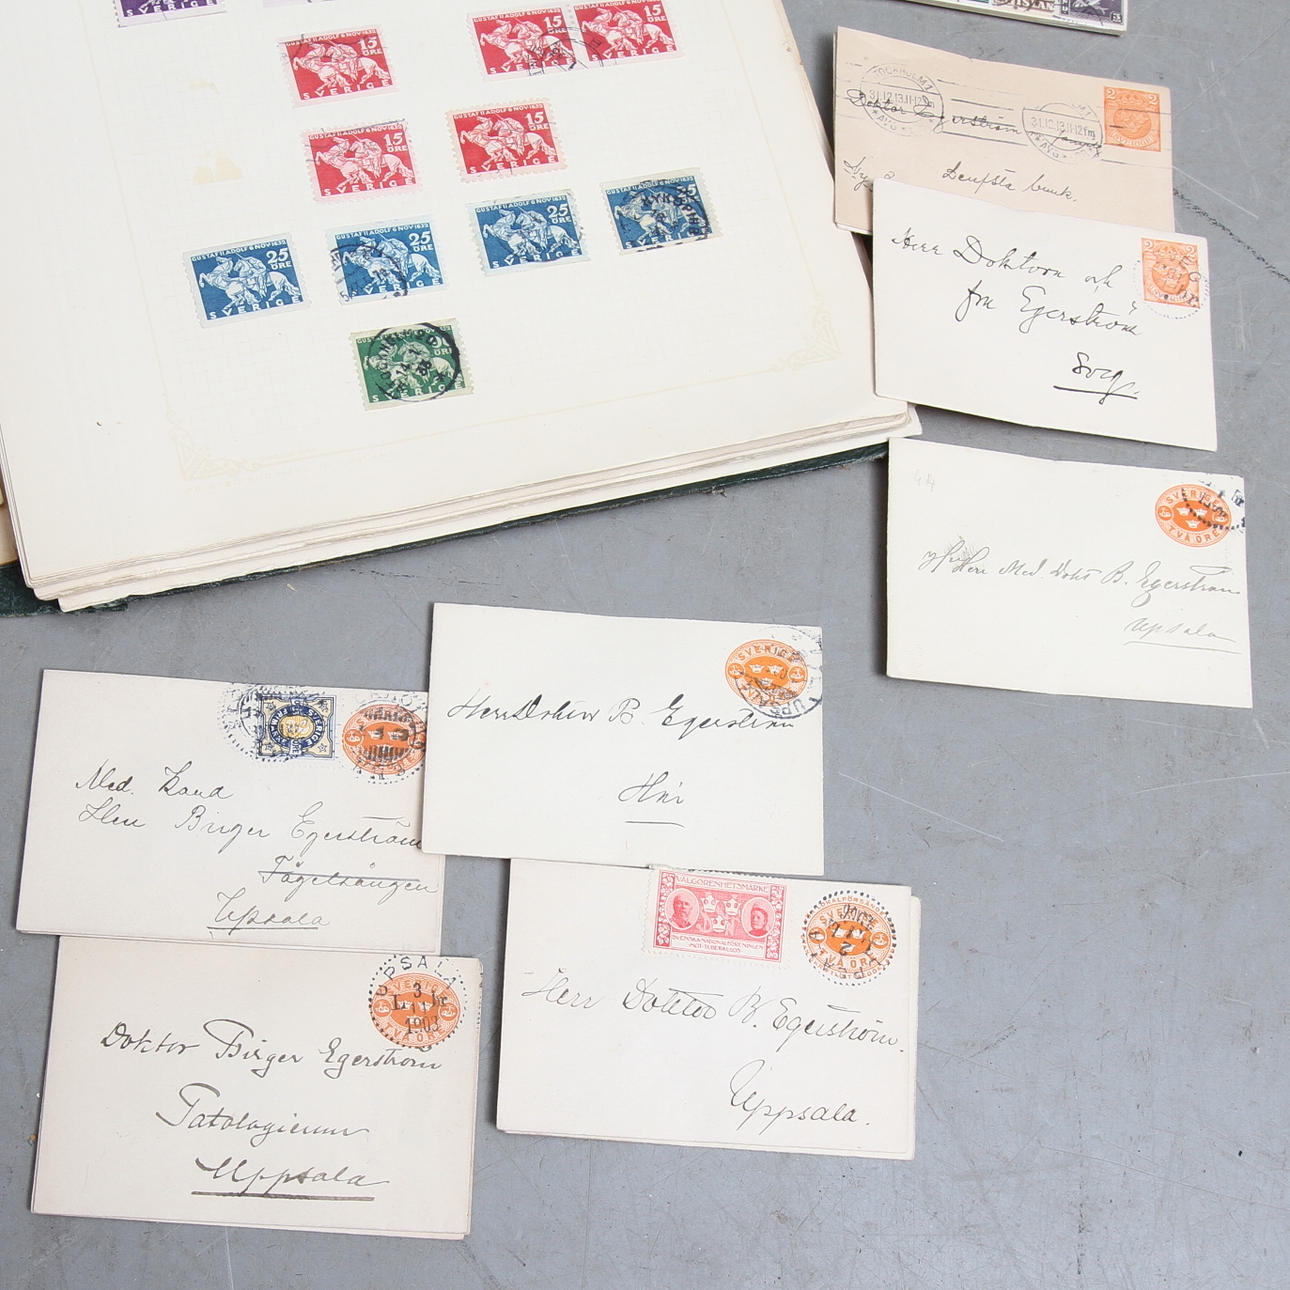 GUSTAF II ADOLF 6 NOV 1632
15 ÖRE
SVERIGE
GUSTAF II ADOLF 6 NOV 1632
15 ÖRE
SVERIGE
GUSTAF II ADOLF 6 NOV 1632
15 ÖRE
SVERIGE
GUSTAF II ADOLF 6 NOV 1632
15 ÖRE
SVERIGE
GUSTAF II ADOLF 6 NOV 1632
15 ÖRE
SVERIGE
GUSTAF II ADOLF 6 NOV 1632
25 ÖRE
SVERIGE
GUSTAF II ADOLF 6 NOV 1632
25 ÖRE
SVERIGE
GUSTAF II ADOLF 6 NOV 1632
25 ÖRE
SVERIGE
25
SVERIGE
ÖRE
SVERIGE
STOCKHOLM 1
31.12.13.11-12 fm
31.12.13.11-12 fm
2 2
Doktor Egerström
Dempsta bruk.
2 2
Herr Doktorn och
fru Egerström
Svg.
SVERIGE
TVÅ ÖRE
Herr Med. Dokt B. Egerström
Upsala
SVERIGE
UPSALA
Herr Doktor B. Egerström
Här
SVERIGE
Med. Kand
Herr Birger Egerström
Fågelsången
Upsala
UPSALA
SVERIGE
3
1903
TVÅ ÖRE
Doktor Birger Egerström
Patologicum
Uppsala
VÄLGÖRENHETSMÄRKE
SVENSKA NATIONALFÖRENINGEN
MOT TUBERKULOS
SVERIGE
TVÅ ÖRE
Herr Doktor B. Egerström.
Uppsala.